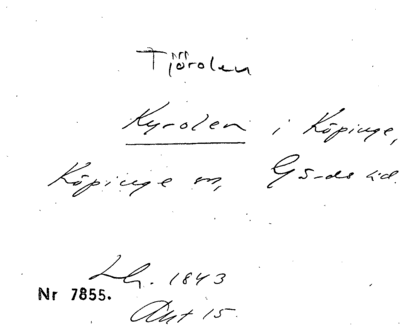 Tjörolen
Kyrolen i Köpinge,
Köpinge sn, Gä-ds hd.
Lh. 1843
Nr 7855.
Akt 15.